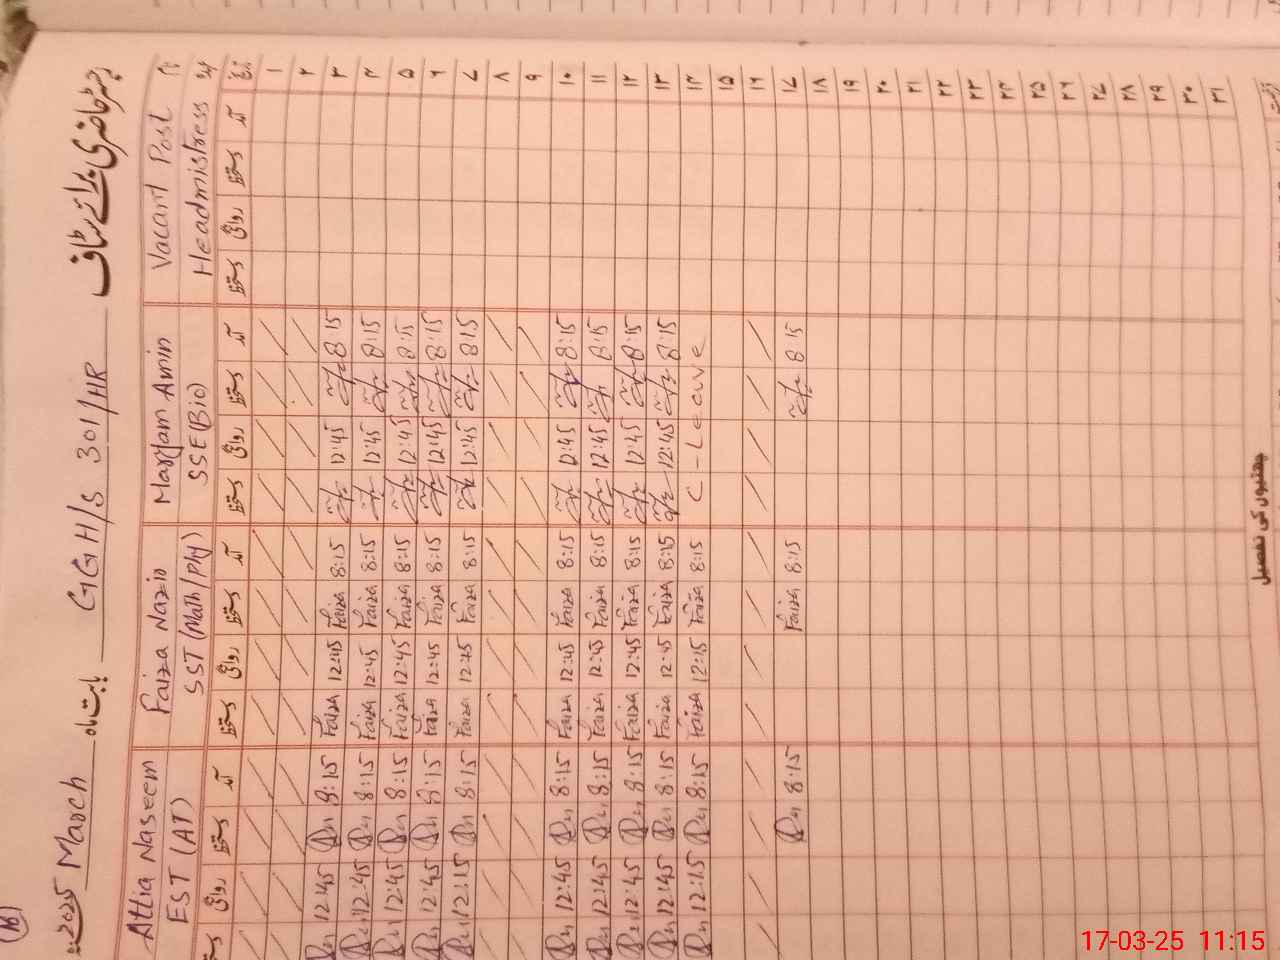 16
رجسٹر حاضری برائے سٹاف GGH/S 301/HR بابت ماہ March 2025
Attia Naseem Faiza Nazir Maryam Amin Vacant Post نام
EST (AT) SST (Math/Phy) SSE (Bio) Headmistress عہدہ
دستخط روانگی دستخط آمد دستخط روانگی دستخط آمد دستخط روانگی دستخط آمد دستخط روانگی دستخط آمد تاریخ
۱
۲
12:45 8:15 Faiza 12:45 Faiza 8:15 12:45 8:15 ۳
12:45 8:15 Faiza 12:45 Faiza 8:15 12:45 8:15 ۴
12:45 8:15 Faiza 12:45 Faiza 8:15 12:45 8:15 ۵
12:45 8:15 Faiza 12:45 Faiza 8:15 12:45 8:15 ۶
12:15 8:15 Faiza 12:15 Faiza 8:15 12:45 8:15 ۷
۸
۹
12:45 8:15 Faiza 12:45 Faiza 8:15 12:45 8:15 ۱۰
12:45 8:15 Faiza 12:45 Faiza 8:15 12:45 8:15 ۱۱
12:45 8:15 Faiza 12:45 Faiza 8:15 12:45 8:15 ۱۲
12:45 8:15 Faiza 12:45 Faiza 8:15 12:45 8:15 ۱۳
12:15 8:15 Faiza 12:15 Faiza 8:15 C-Leave ۱۴
۱۵
۱۶
8:15 Faiza 8:15 8:15 ۱۷
۱۸
۱۹
۲۰
۲۱
۲۲
۲۳
۲۴
۲۵
۲۶
۲۷
۲۸
۲۹
۳۰
۳۱
چھٹیوں کی تفصیل
17-03-25 11:15